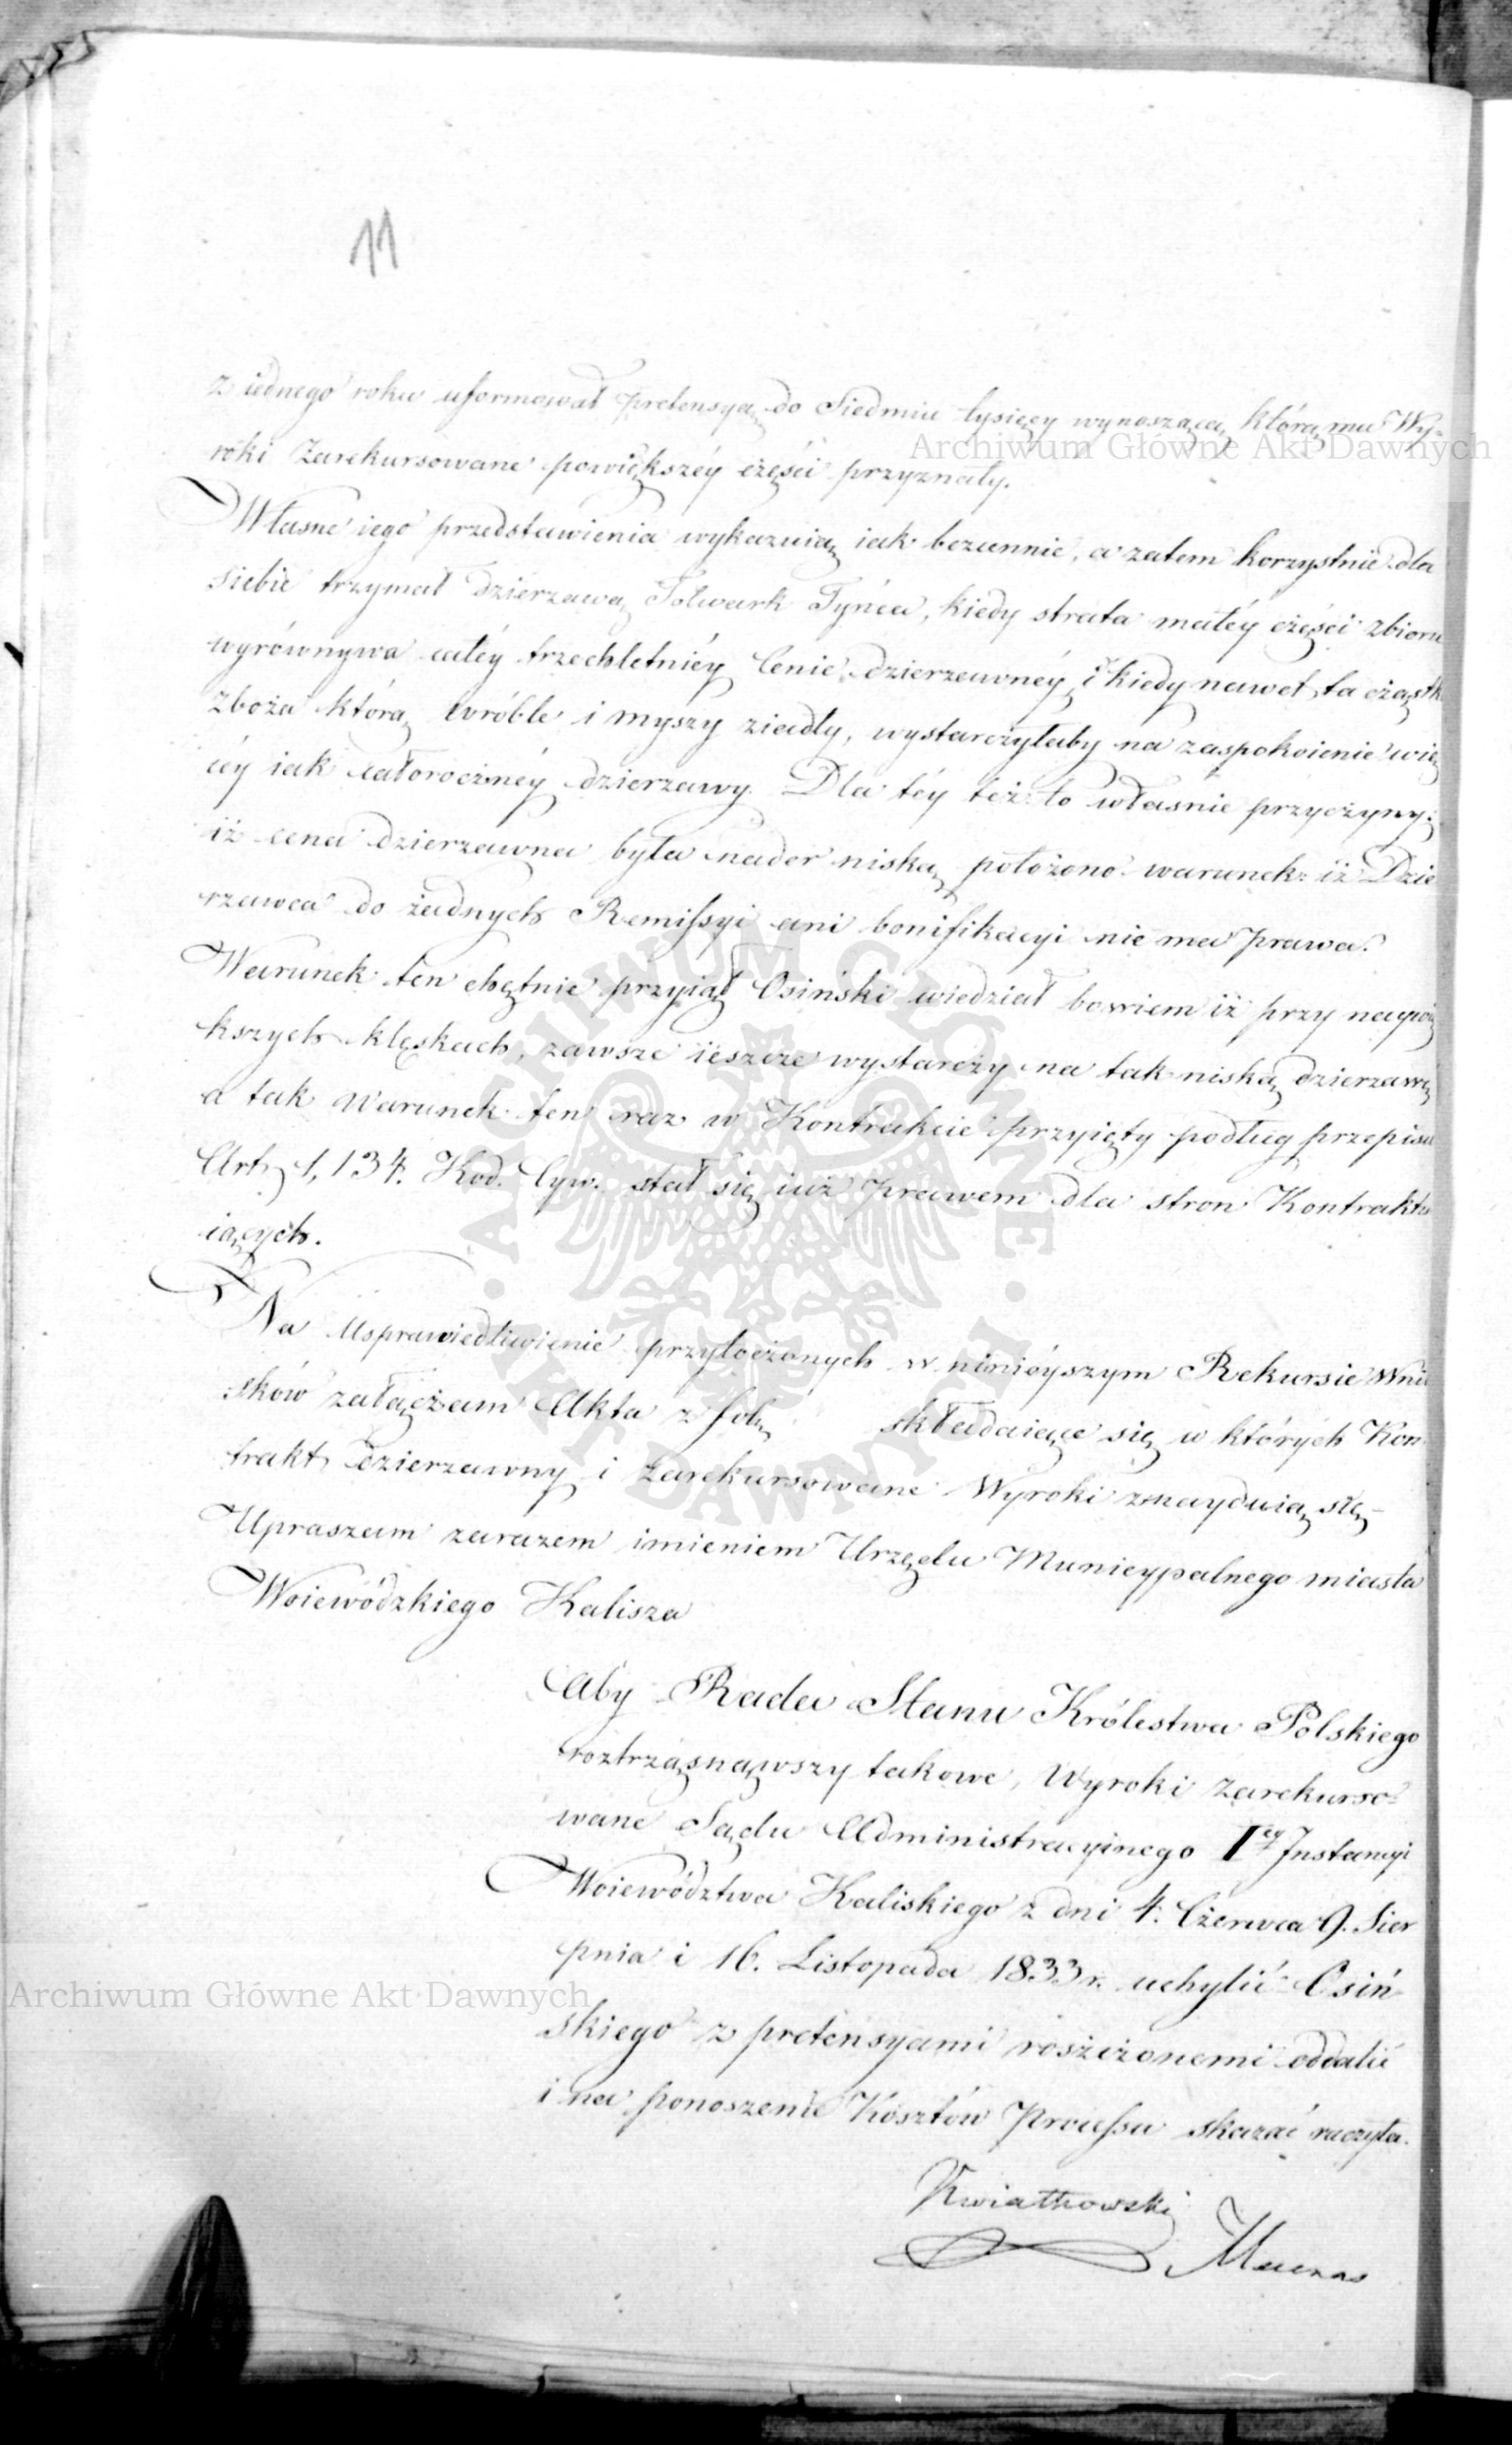 11
z iednego roku uformował pretensyą do Siedmiu tysięcy wynoszącą, którą mu Wy-
roki Zarekursowane powiększéy części przyznały.
Własne iego przedstawienia wykazuią iak bezcennie, a zatem korzystnie dla
siebie trzymał dzierzawą Folwark Tyńca, kiedy strata małéy części zbioru
wyrównywa całéy trzechletniéy Cenie dzierzawnéy, i kiedy nawet ta cząstk
Zboża którą wróble i myszy ziadły, wystarczyłaby na zaspokoienie wię
céy iak całorocznéy dzierzawy. Dla téy też to własnie przyczyny;
iż cena dzierzawna była nader niską, położono warunek: iż Dzie
rzawca do żadnych Remissyi ani bonifikacyi nie ma prawa.
Warunek ten chętnie przyiął Osiński wiedział bowiem iż przy naywię
kszych klęskach, zawsze ieszcze wystarczy na tak niską dzierzawę
a tak warunek ten raz w Kontrakcie przyięty podług przepisu
Art. 1,134. Kod. Cyw. stał się iuż prawem dla stron Kontraktu
iących.
Na Usprawiedliwienie przytoczonych w ninieyszym Rekursie Wnio
sków załączam Akta z fol. składaiące się w których Kon
trakt dzierzawny i zarekursowane Wyroki znayduią się –
Upraszam zarazem imieniem Urzędu Municypalnego miasta
Woiewódzkiego Kalisza
Aby Rada Stanu Królestwa Polskiego
roztrząsnąwszy takowe, Wyroki zarekurso-
wane Sądu Administracyinego I.ey Instancyi
Woiewództwa Kaliskiego z dni 4. Czerwca 9. Sier
pnia i 16. Listopada 1833 r. uchylić Osiń
skiego z pretensyami rosżczonemi oddalić
i na ponoszenie Kosztów Processu skazać raczyła.
Kwiatkowski
Mecenas
Archiwum Główne Akt Dawnych
Archiwum Główne Akt Dawnych
ARCHIWUM GŁÓWNE AKT DAWNYCH